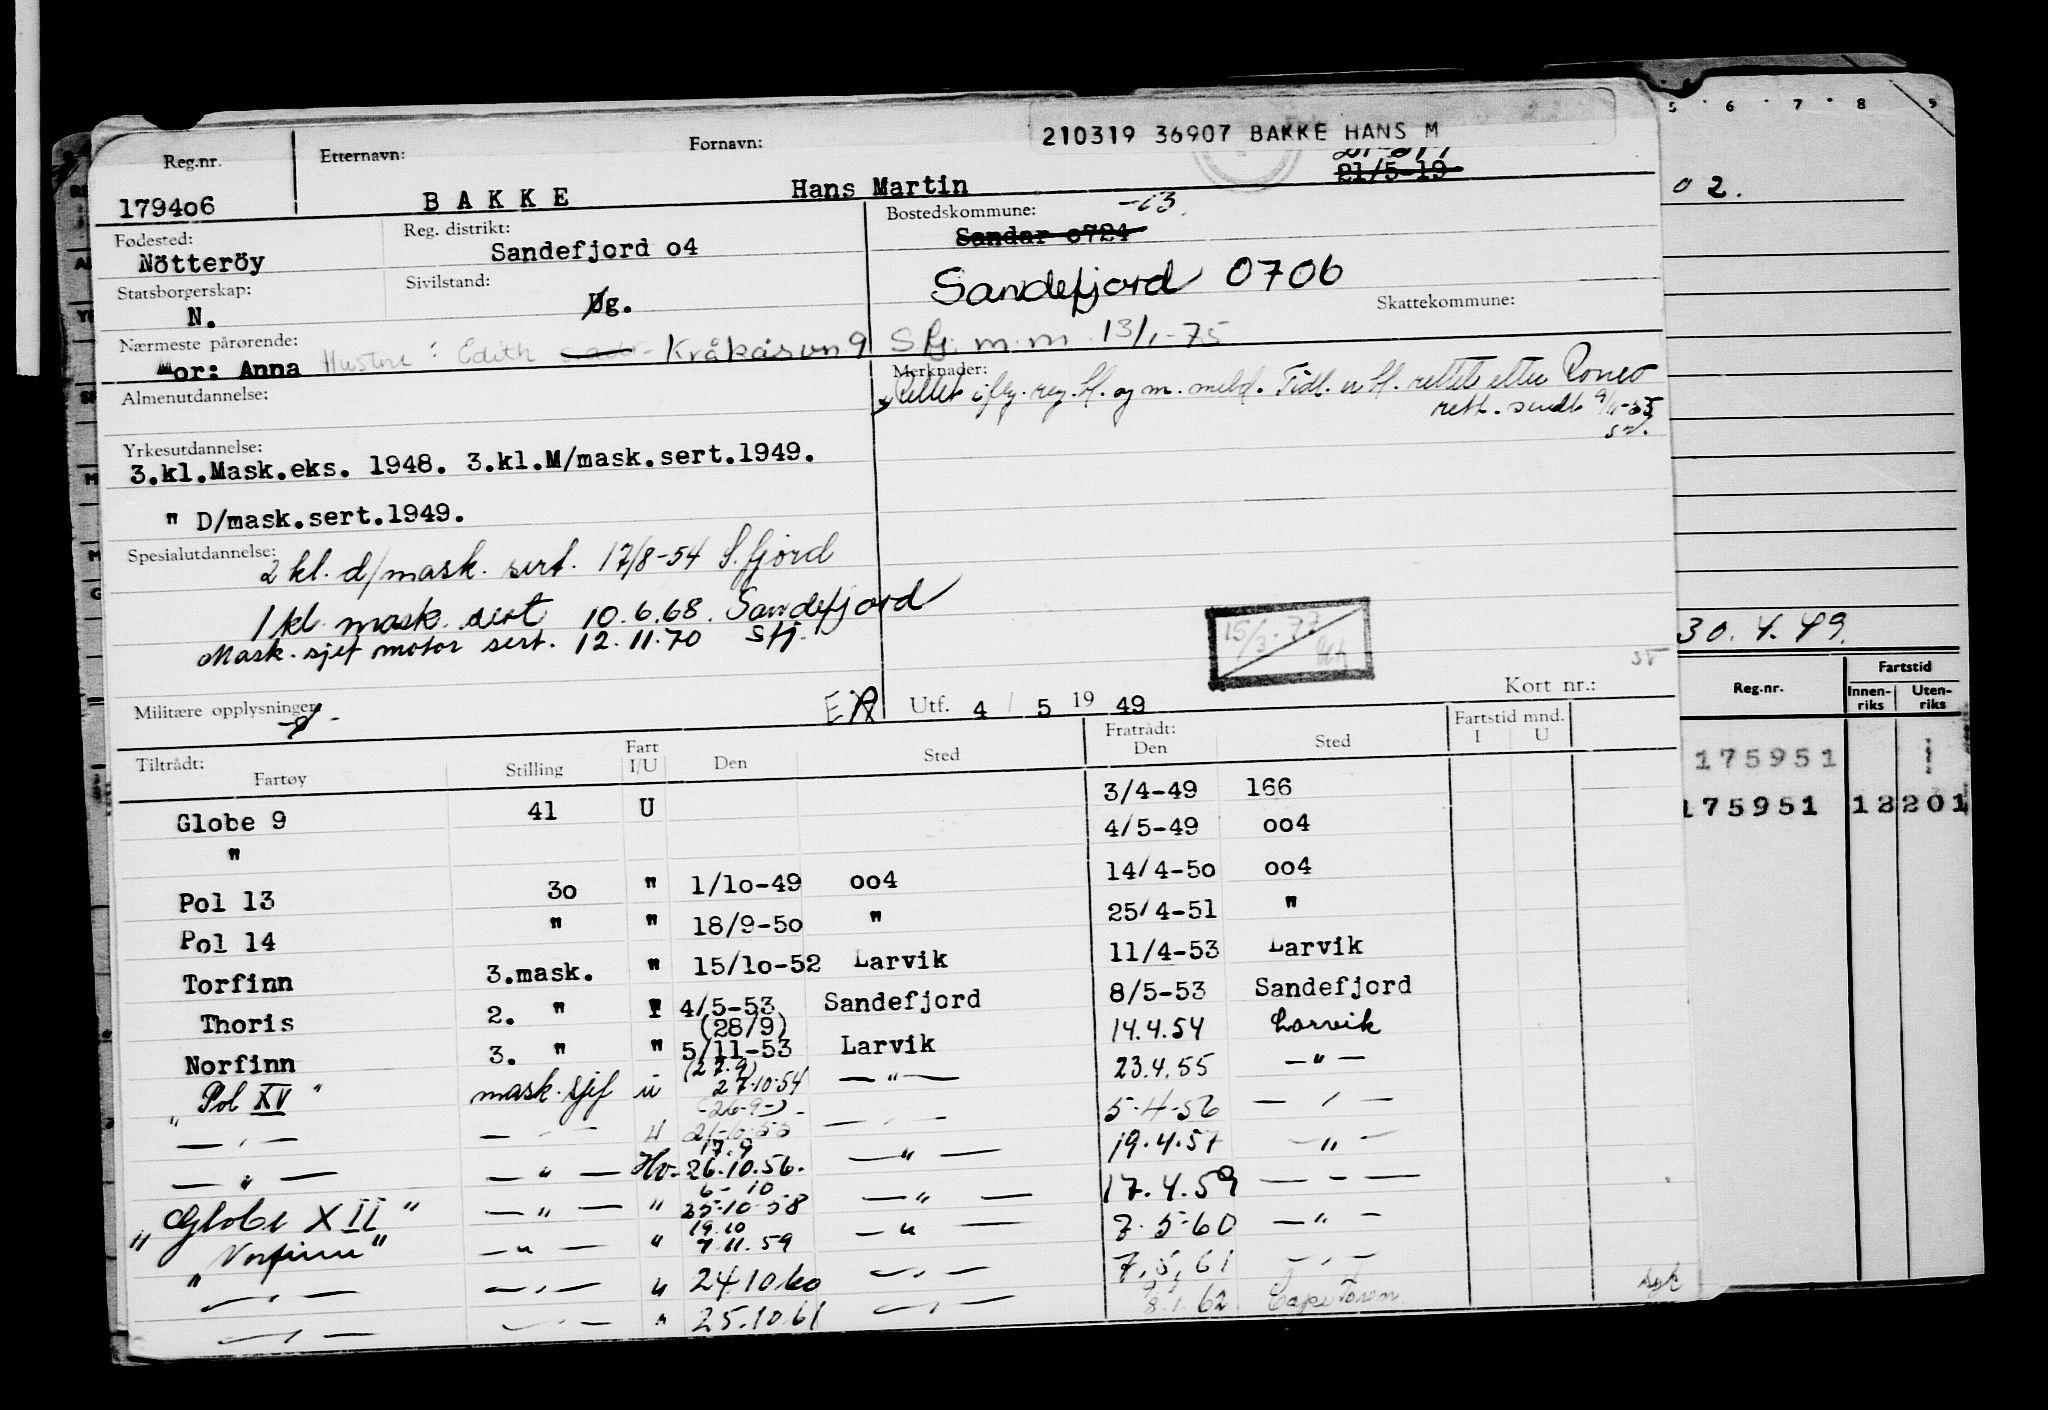 210319 36907 BAKKE HANS M
Reg.nr. Etternavn: Fornavn:
21/5-19
179406 B A K K E Hans Martin
Fødested: Reg. distrikt: Bostedskommune: -63.
Nötteröy Sandefjord o4 Sandar o724
Statsborgerskap: Sivilstand: Sandefjord 0706
N. Ug. Skattekommune:
Nærmeste pårørende:
Mor: Anna Hustru: Edith Kråkåsvn 9 Sfj. m.m. 13/1-75
Almenutdannelse: Merknader:
Rettet reg. bl. og m. meld. Tidl. rettet etter
rett. sendt
Yrkesutdannelse:
3.kl.Mask.eks. 1948. 3.kl.M/mask.sert.1949.
" D/mask.sert.1949.
Spesialutdannelse:
2 kl. d/mask. sert. 17/8-54 S.fjord
1 kl. mask. sert 10.6.68. Sandefjord
Mask.sjef motor sert. 12.11.70 Sfj.
15/3-77
Militære opplysninger: Utf. 4 / 5 19 49 Kort nr.:
Tiltrådt: Fratrådt: Fartstid mnd.
Fartøy Stilling Fart I/U Den Sted Den Sted I U
Globe 9 41 U 3/4-49 166
" 4/5-49 oo4
Pol 13 3o " 1/1o-49 oo4 14/4-5o oo4
Pol 14 " " 18/9-5o " 25/4-51 "
Torfinn 3.mask. " 15/1o-52 Larvik 11/4-53 Larvik
Thoris 2. " I 4/5-53 Sandefjord 8/5-53 Sandefjord
(28/9)
Norfinn 3. " " 5/11-53 Larvik 14.4.54 Larvik
(27.9)
"Pol XV" mask.sjef u 27.10.54 — " — 23.4.55 — " —
(26-9-)
— " — — " — u 21-10-55 — " — 5-4-56 — " —
17.9
— " — — " — Hv. 26.10.56. — " — 19.4.57 — " —
6-10
"Globe XII" — " — " 25-10-58 — " — 17.4.59 — " —
19.10
"Norfinn" — " — " 7.11.59 — " — 7.5-60 — " —
— " — — " — " 24.10.60 — " — 7.5.61 — " —
— " — — " — " 25.10.61 — " — 8.1.62 Cape Town syk
5 6 7 8 9
02.
30.4.49.
Reg.nr. Fartstid
Innen-riks Uten-riks
175951
175951 12 201